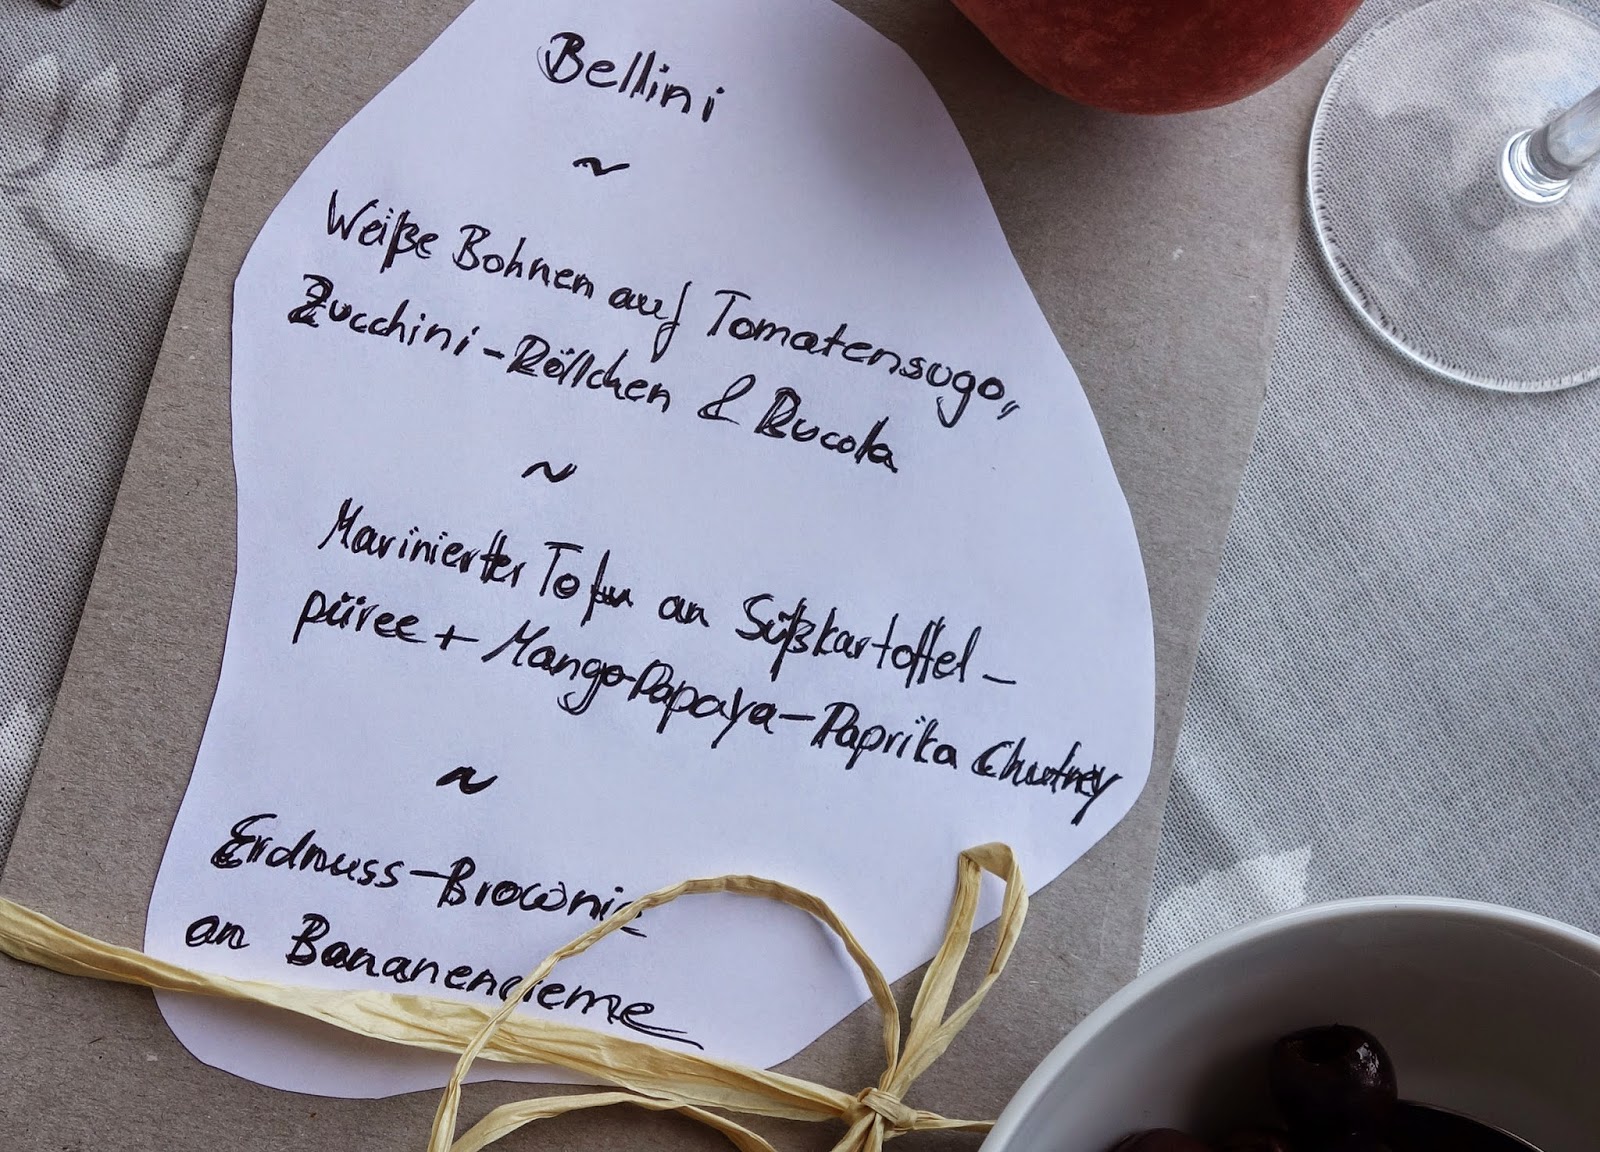 Bellini
~
Weiße Bohnen auf Tomatensugo,
Zucchini-Röllchen & Rucola
~
Marinierter Tofu an Süßkartoffel-
püree + Mango-Papaya-Paprika Chutney
~
Erdnuss-Brownie
an Bananencreme